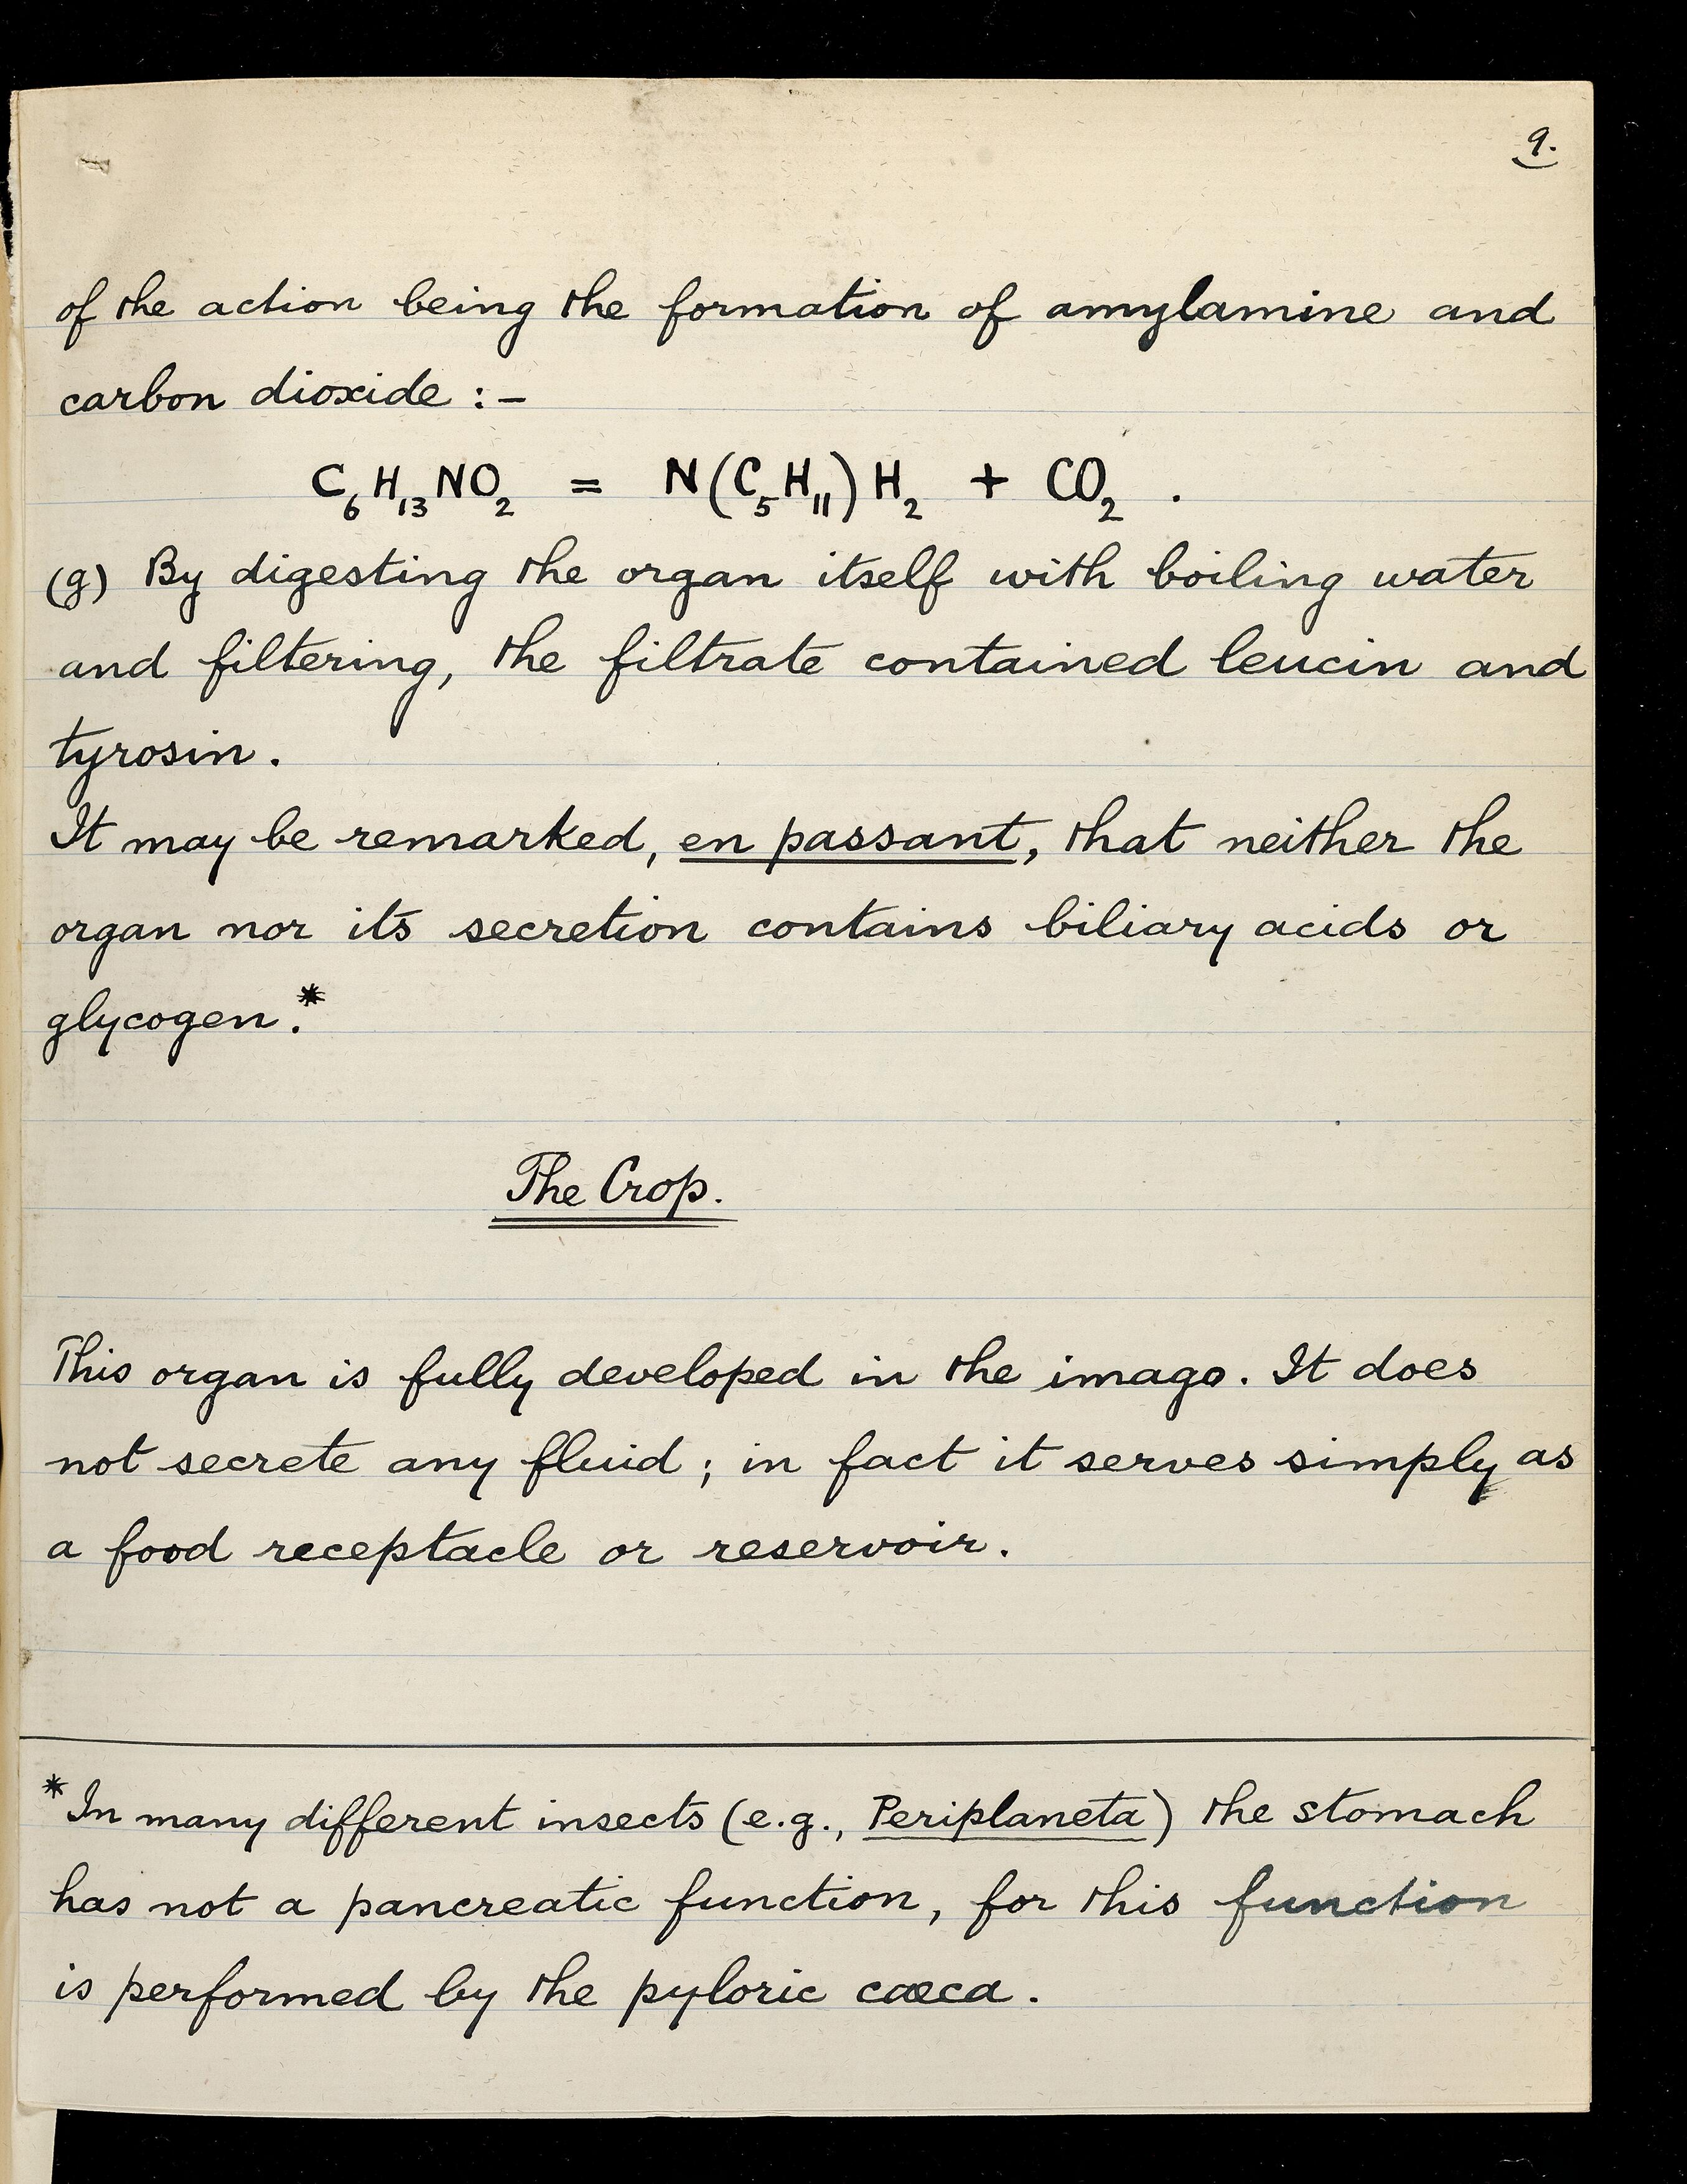 9.
of the action being the formation of amylamine and
carbon dioxide :-
C₆H₁₃NO₂ = N(C₅H₁₁)H₂ + CO₂ .
(g) By digesting the organ itself with boiling water
and filtering, the filtrate contained leucin and
tyrosin.
It may be remarked, en passant, that neither the
organ nor its secretion contains biliary acids or
glycogen.*
The Crop.
This organ is fully developed in the imago. It does
not secrete any fluid ; in fact it serves simply as
a food receptacle or reservoir.
*In many different insects (e.g., Periplaneta) the stomach
has not a pancreatic function, for this function
is performed by the pyloric cæca.